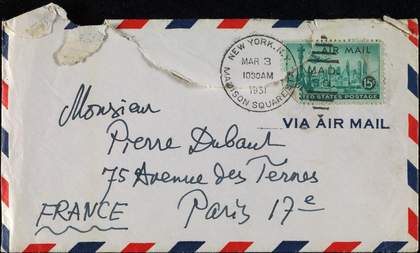 NEW YORK, N.Y.
MAR 3
1030AM
MADISON SQUARE
AIR MAIL
15¢
UNITED STATES POSTAGE
VIA AIR MAIL
Monsieur
Pierre Dubaut
75 Avenue des Ternes
Paris 17e
FRANCE